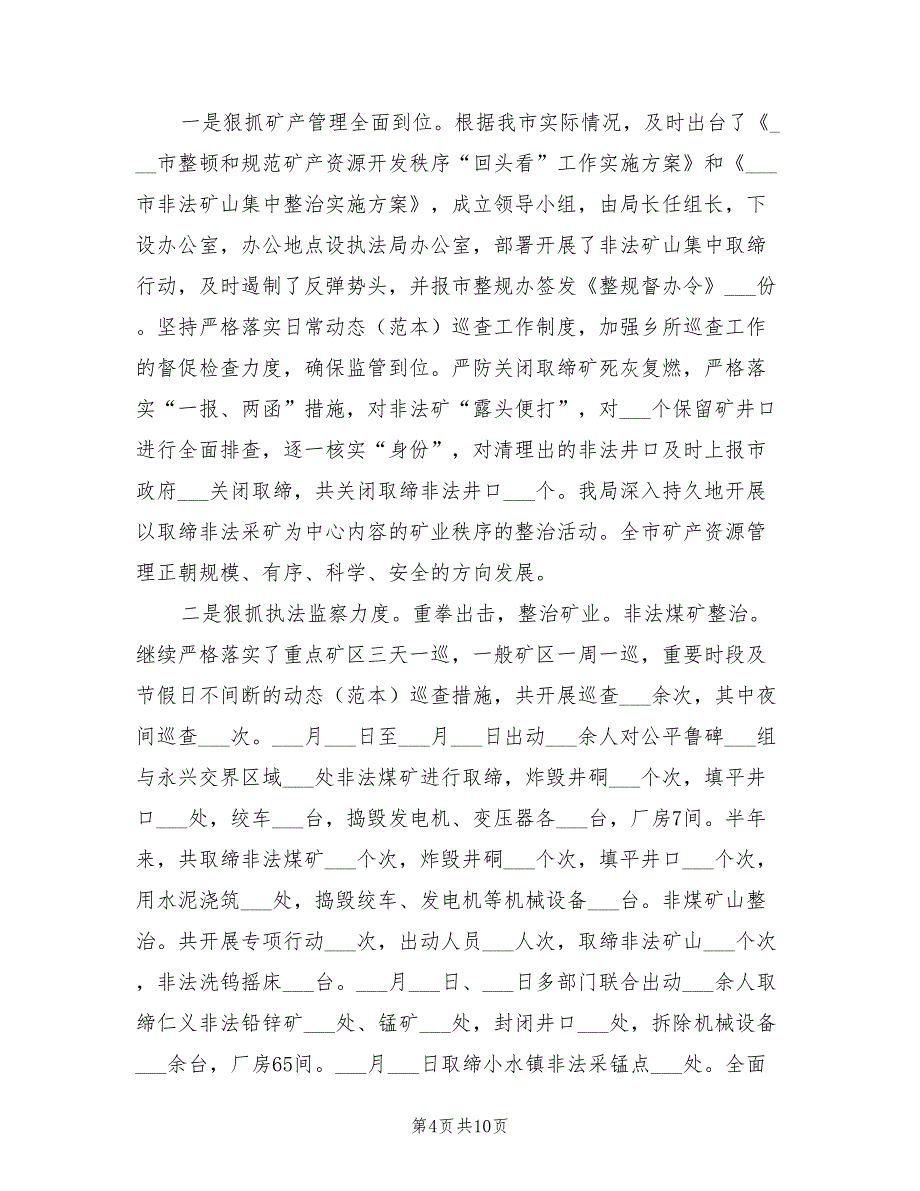 一是狠抓矿产管理全面到位。根据我市实际情况，及时出台了《_
__市整顿和规范矿产资源开发秩序“回头看”工作实施方案》和《___
市非法矿山集中整治实施方案》，成立领导小组，由局长任组长，下
设办公室，办公地点设执法局办公室，部署开展了非法矿山集中取缔
行动，及时遏制了反弹势头，并报市整规办签发《整规督办令》___份
。坚持严格落实日常动态（范本）巡查工作制度，加强乡所巡查工作
的督促检查力度，确保监管到位。严防关闭取缔矿死灰复燃，严格落
实“一报、两函”措施，对非法矿“露头便打”，对___个保留矿井口
进行全面排查，逐一核实“身份”，对清理出的非法井口及时上报市
政府___关闭取缔，共关闭取缔非法井口___个。我局深入持久地开展
以取缔非法采矿为中心内容的矿业秩序的整治活动。全市矿产资源管
理正朝规模、有序、科学、安全的方向发展。
二是狠抓执法监察力度。重拳出击，整治矿业。非法煤矿整治。
继续严格落实了重点矿区三天一巡，一般矿区一周一巡，重要时段及
节假日不间断的动态（范本）巡查措施，共开展巡查___余次，其中夜
间巡查___次。___月___日至___月___日出动___余人对公平鲁碑___组
与永兴交界区域___处非法煤矿进行取缔，炸毁井硐___个次，填平井
口___处，绞车___台，捣毁发电机、变压器各___台，厂房7间。半年
来，共取缔非法煤矿___个次，炸毁井硐___个次，填平井口___个次，
用水泥浇筑___处，捣毁绞车、发电机等机械设备___台。非煤矿山整
治。共开展专项行动___次，出动人员___人次，取缔非法矿山___个次
，非法洗钨摇床___台。___月___日、___日多部门联合出动___余人取
缔仁义非法铅锌矿___处、锰矿___处，封闭井口___处，拆除机械设备
___余台，厂房65间。___月___日取缔小水镇非法采锰点___处。全面
第4页共10页